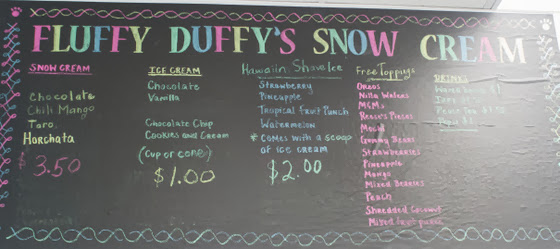 FLUFFY DUFFY'S SNOW CREAM
SNOW CREAM
Chocolate
Chili Mango
Taro
Horchata
$3.50
ICE CREAM
Chocolate
Vanilla
Chocolate Chip
Cookies and Cream
(cup or cone)
$1.00
Hawaiin Shave Ice
Strawberry
Pineapple
Tropical Fruit Punch
Watermelon
* comes with a scoop
of ice cream
$2.00
Free Toppings
Oreos
Nilla Wafers
M&Ms
Reese's Pieces
Mochi
Gummy Bears
Strawberries
Pineapple
Mango
Mixed Berries
Peach
Shredded Coconut
Mixed fruit
DRINKS